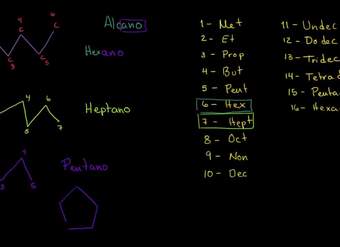 Alcano
Hexano
Heptano
Pentano
1 - Met
2 - Et
3 - Prop
4 - But
5 - Pent
6 - Hex
7 - Hept
8 - Oct
9 - Non
10 - Dec
11 - Undec
12 - Dodec
13 - Tridec
14 - Tetrad
15 - Penta
16 - Hexa